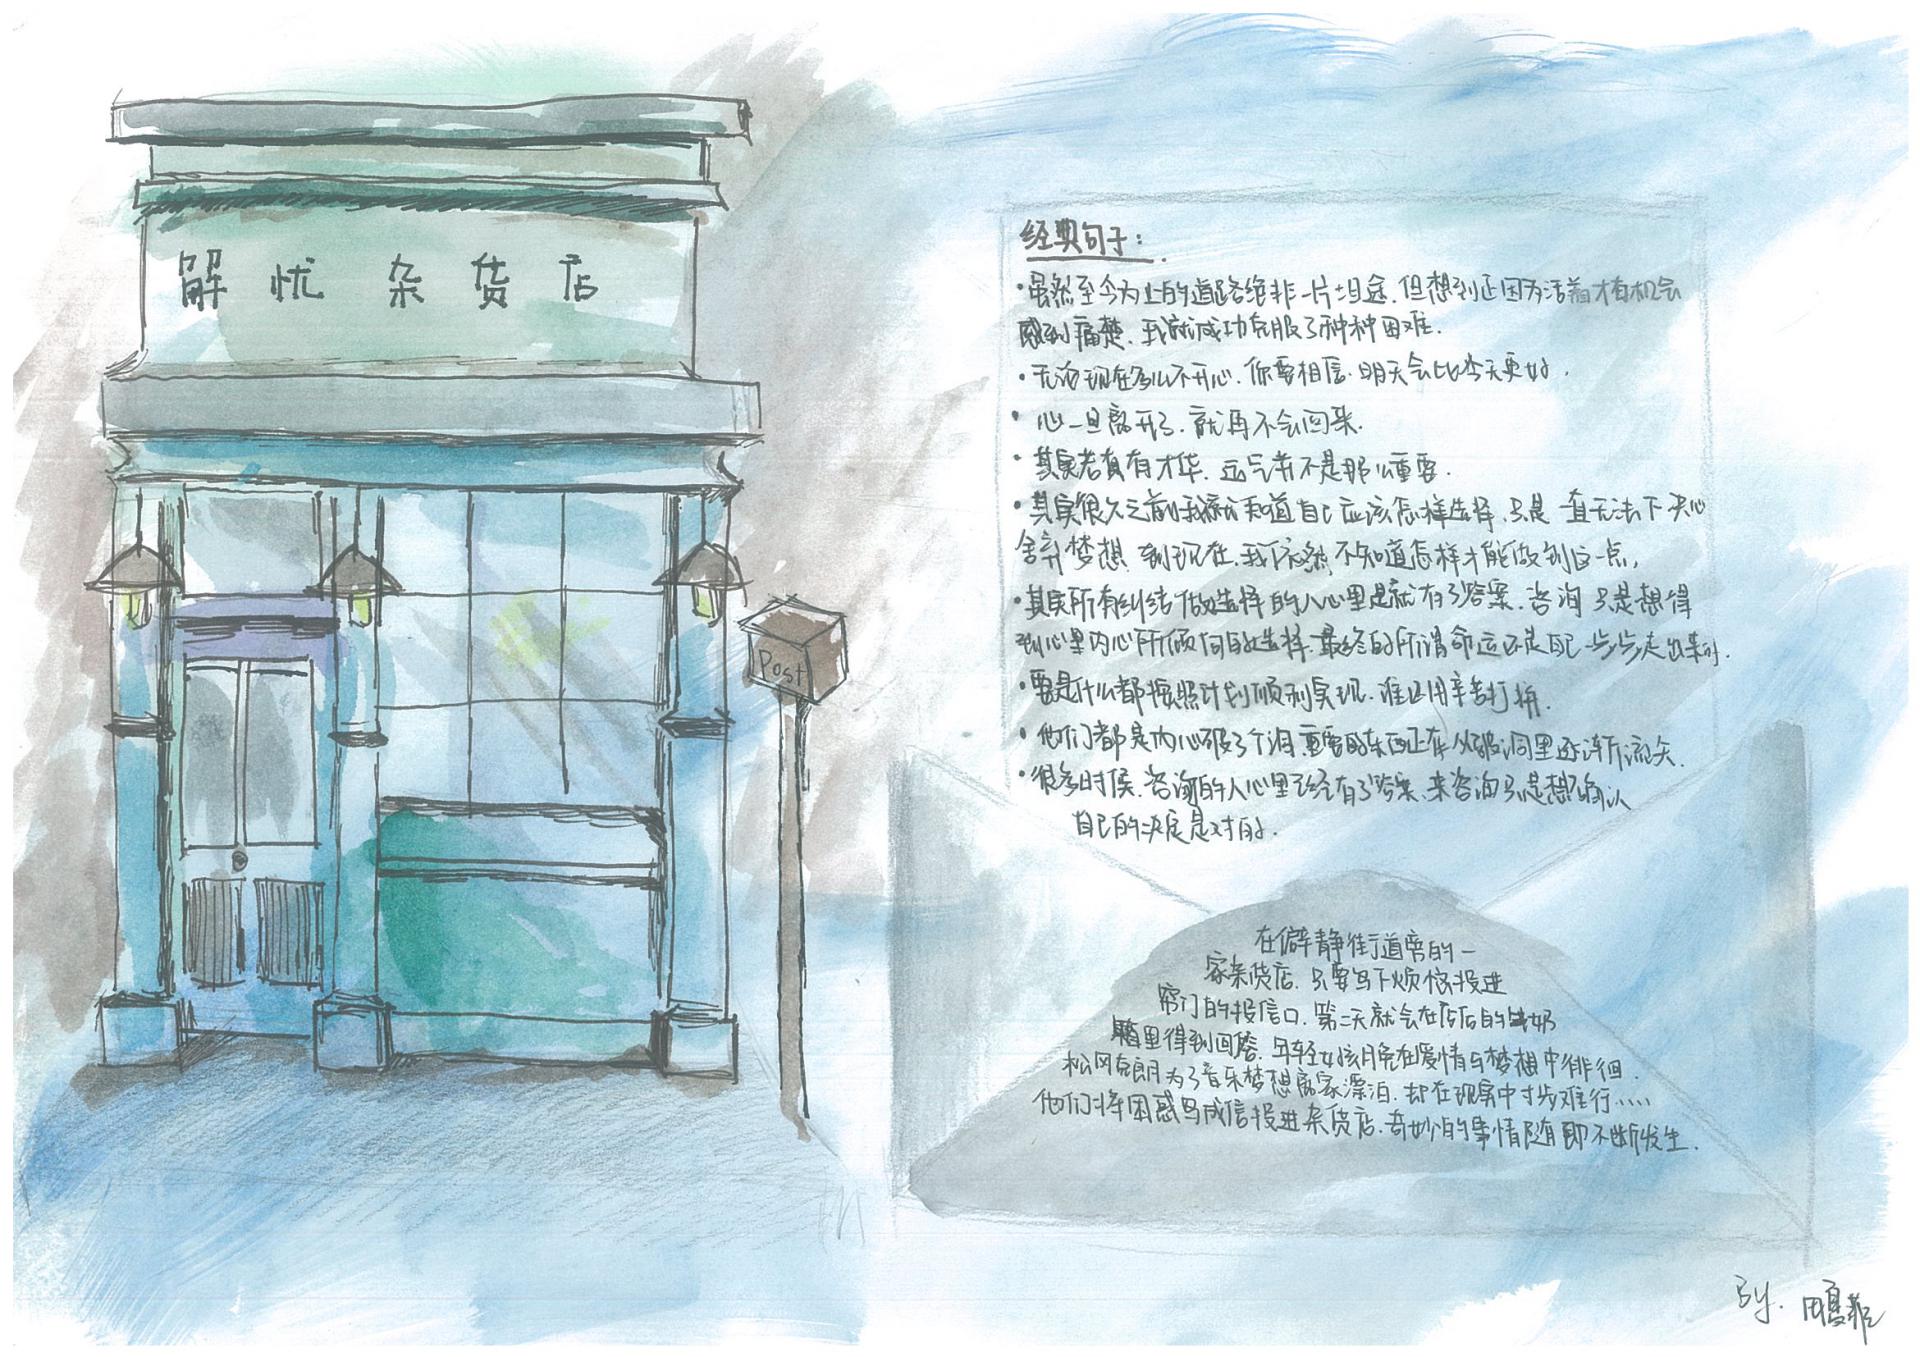 解忧杂货店
Post
经典句子：
·虽然至今为止的道路绝非一片坦途，但想到正因为活着才有机会
感到痛楚，我就成功克服了种种困难．
·无论现在多么不开心，你要相信，明天会比今天更好．
·心一旦离开了，就再不会回来．
·其实若真有才华，运气并不是那么重要．
·其实很久之前我就知道自己应该怎样选择，只是一直无法下决心
舍弃梦想，到现在，我依然不知道怎样才能做到这一点，
·其实所有纠结做选择的人心里早就有了答案，咨询只是想得
到心里内心所倾向的选择，最终的所谓命运还是自己一步步走出来的．
·要是什么都按照计划顺利实现，谁还用辛苦打拼．
·他们都是内心破了个洞，重要的东西正在从破洞里逐渐流失．
·很多时候，咨询的人心里已经有了答案，来咨询只是想确认
自己的决定是对的．
在僻静街道旁的一
家杂货店，只要写下烦恼投进
帘门的投信口，第二天就会在店后的牛奶
箱里得到回答．年轻女孩月兔在爱情与梦想中徘徊．
松冈克朗为了音乐梦想离家漂泊，却在现实中寸步难行．．．．．
他们将困惑写成信投进杂货店，奇妙的事情随即不断发生．
By.田夏菲